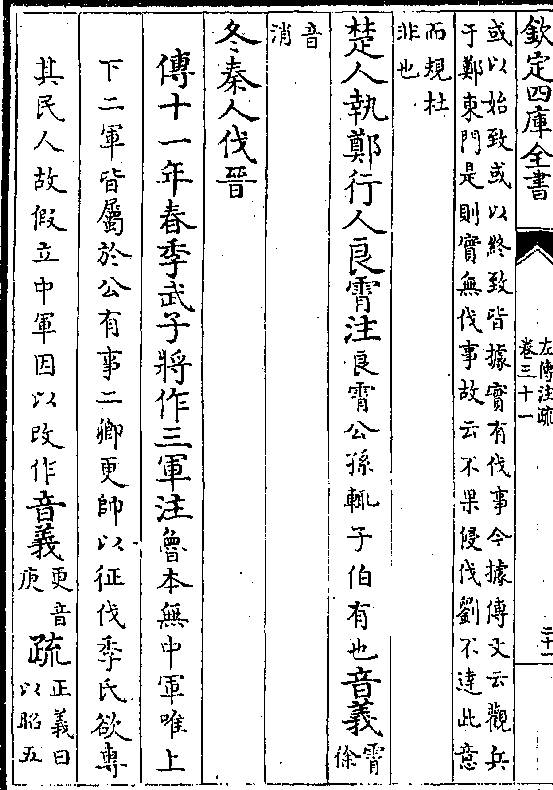 欽定四庫全書
左傳注疏
卷三十一
二十二
或以始致或以終致皆據實有伐事今據傳文云觀兵
于鄭東門是則實無伐事故云不果侵伐劉不達此意
而規杜
非也
楚人執鄭行人良霄注良霄公孫輒子伯有也音義霄徐
音
消
冬秦人伐晉
傳十一年春季武子將作三軍注魯本無中軍唯上
下二軍皆屬於公有事二卿更帥以征伐季氏欲專
其民人故假立中軍因以改作音義更音庚疏正義曰以昭五